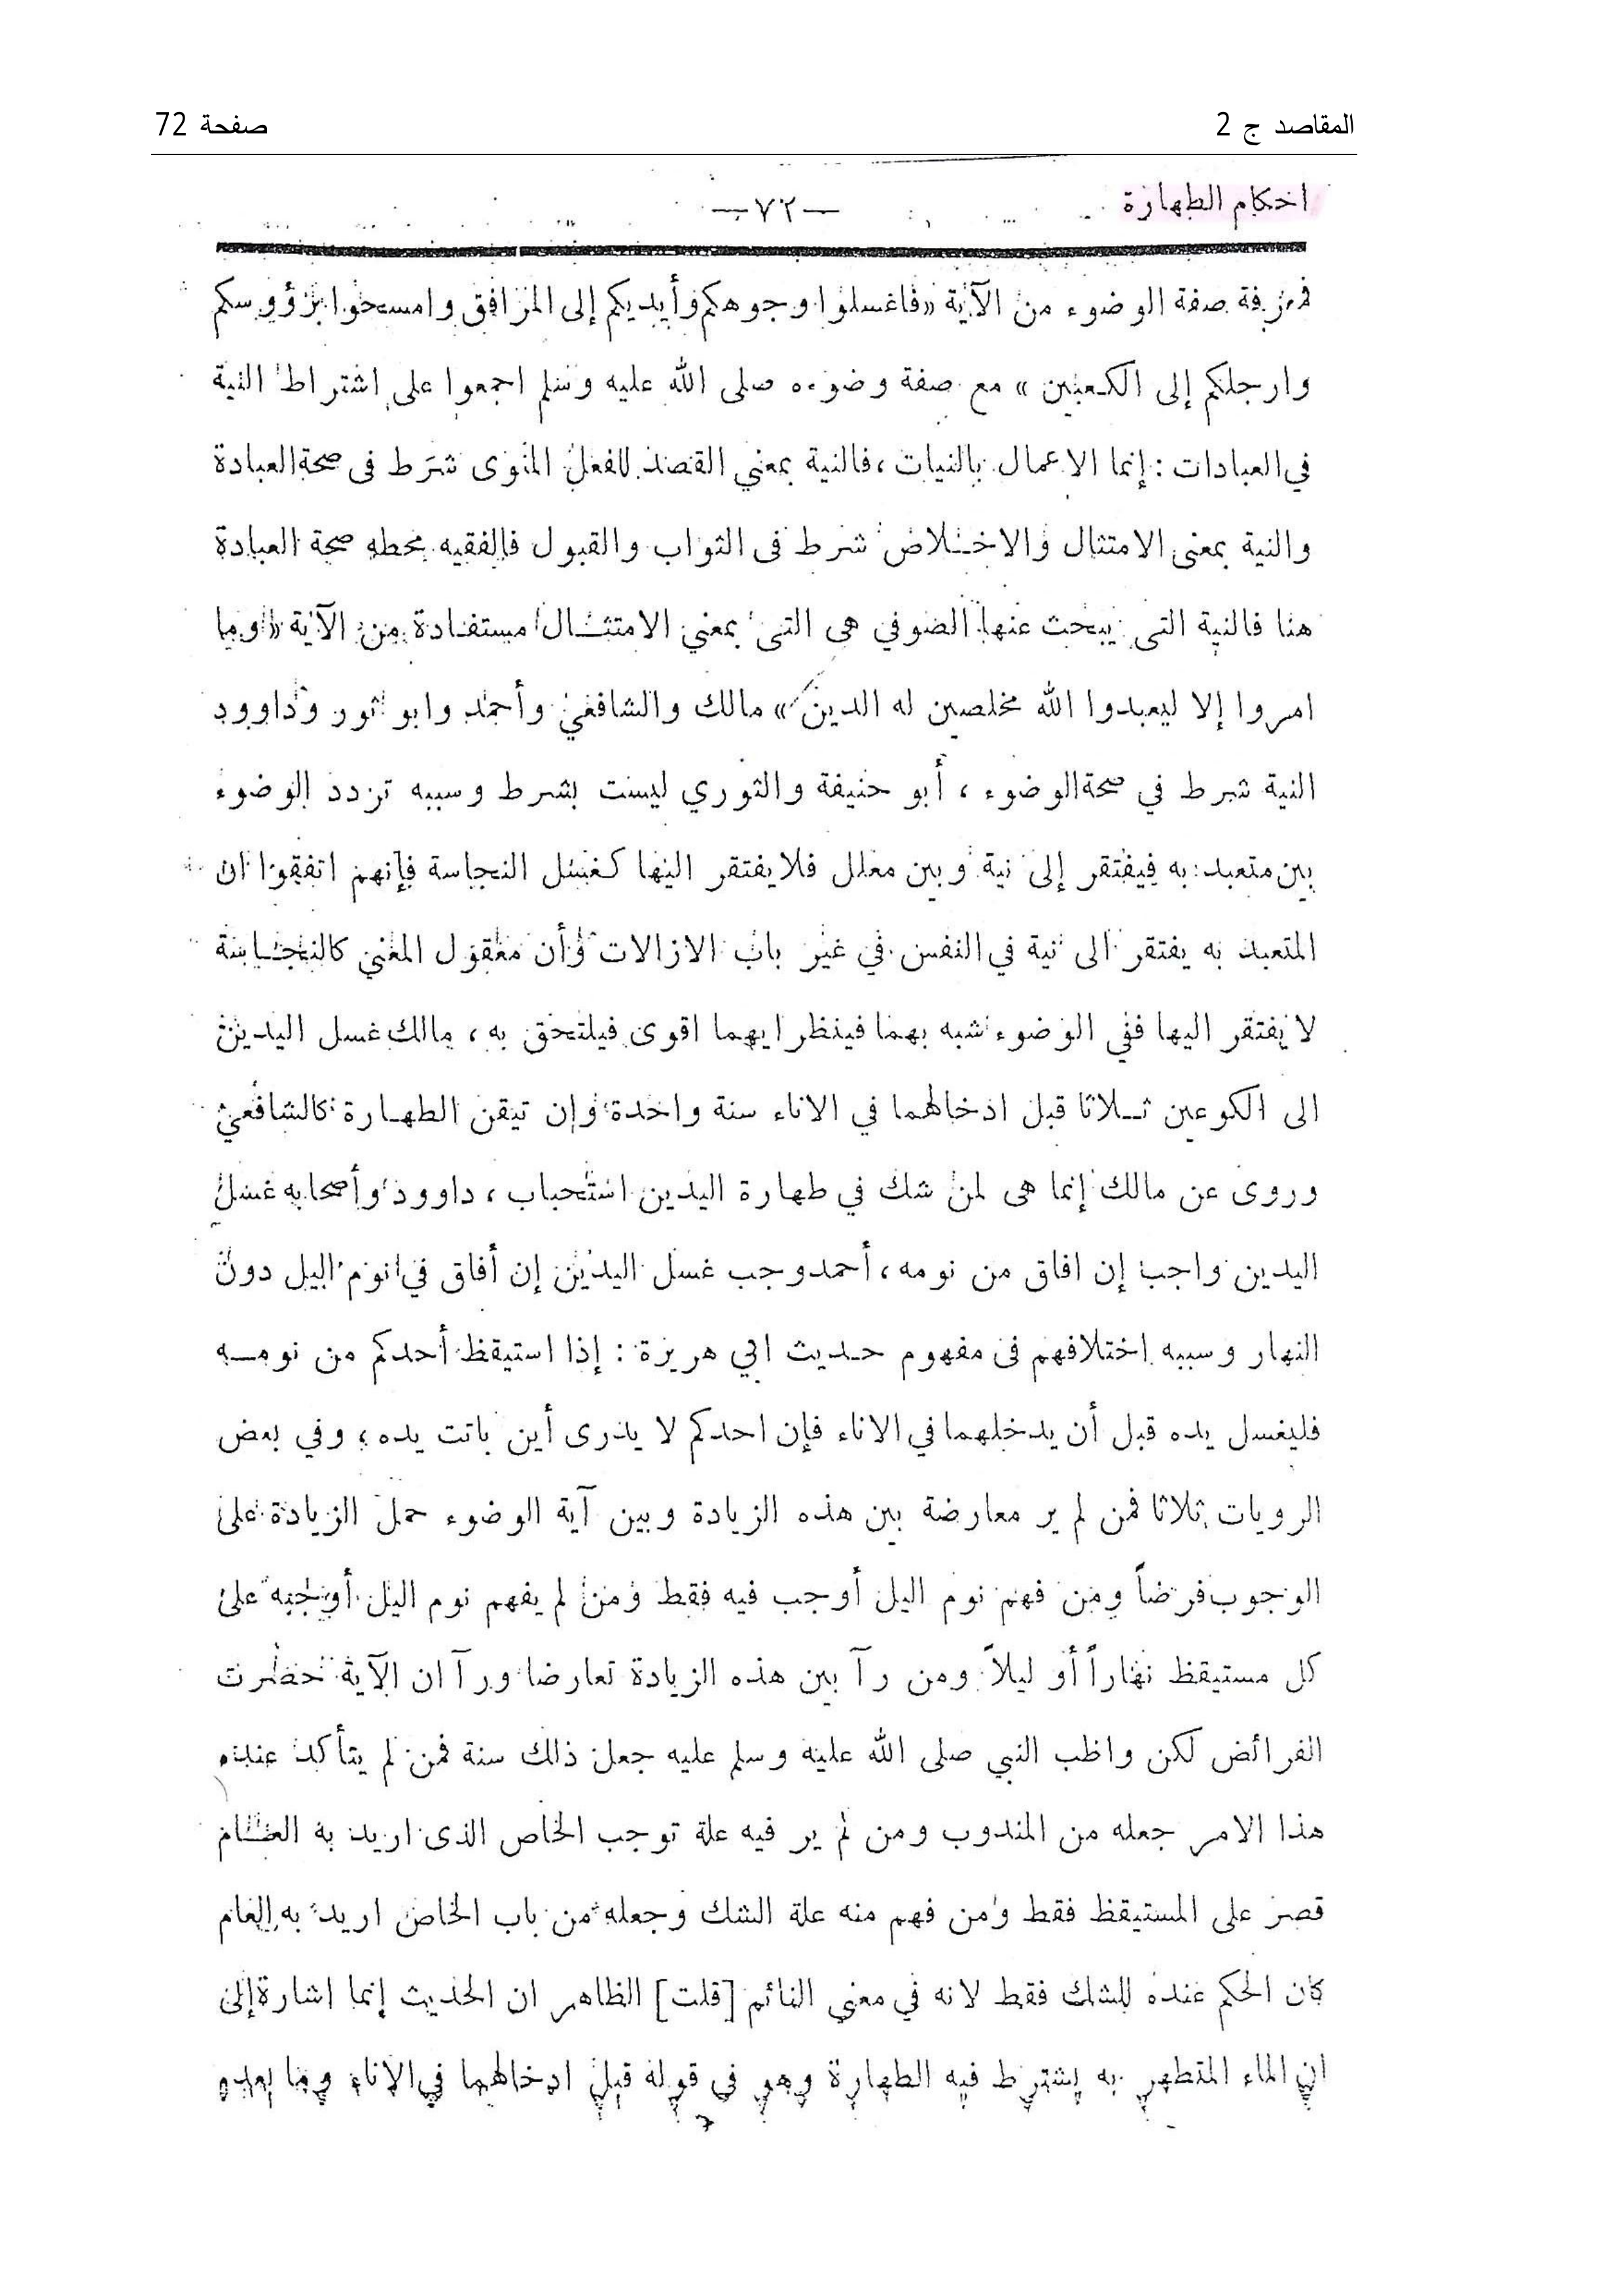 المقاصد ج 2 صفحة 72
احكام الطهارة —٧٢—
فمعرفة صفة الوضوء من الآية «فاغسلوا وجوهكم وأيديكم إلى المرافق وامسحوا برؤوسكم
وارجلكم إلى الكعبين» مع صفة وضوءه صلى الله عليه وسلم اجمعوا على اشتراط النية
في العبادات : إنما الاعمال بالنيات ، فالنية بمعني القصد للفعل المنوى شرط فى صحة العبادة
والنية بمعنى الامتثال والاخلاص شرط فى الثواب والقبول فالفقيه محطه صحة العبادة
هنا فالنية التى يبحث عنها الصوفي هى التى بمعني الامتثال مستفادة من الآية «وما
امروا إلا ليعبدوا الله مخلصين له الدين» مالك والشافعي وأحمد وابو ثور وداوود
النية شرط في صحة الوضوء ، أبو حنيفة والثوري ليست بشرط وسببه تردد الوضوء
بين متعبد به فيفتقر إلى نية وبين معلل فلا يفتقر اليها كغسل النجاسة فإنهم اتفقوا ان
المتعبد به يفتقر الى نية في النفس في غير باب الازالات وأن معقول المعني كالنجاسة
لا يفتقر اليها ففي الوضوء شبه بهما فينظر ايهما اقوى فيلتحق به ، مالك غسل اليدين
الى الكوعين ثلاثا قبل ادخالهما في الاناء سنة واحدة وإن تيقن الطهارة كالشافعي
وروى عن مالك إنما هى لمن شك في طهارة اليدين استحباب ، داوود وأصحابه غسل
اليدين واجب إن افاق من نومه ، أحمد وجب غسل اليدين إن أفاق في نوم اليل دون
النهار وسببه اختلافهم فى مفهوم حديث ابي هريرة : إذا استيقظ أحدكم من نومه
فليغسل يده قبل أن يدخلهما في الاناء فإن احدكم لا يدرى أين باتت يده ، وفي بعض
الرويات ثلاثا فمن لم ير معارضة بين هذه الزيادة وبين آية الوضوء حمل الزيادة على
الوجوب فرضاً ومن فهم نوم اليل أوجب فيه فقط ومن لم يفهم نوم اليل أوجبه على
كل مستيقظ نهاراً أو ليلاً ومن رآ بين هذه الزيادة تعارضا ورآ ان الآية حضرت
الفرائض لكن واظب النبي صلى الله عليه وسلم عليه جعل ذلك سنة فمن لم يتأكد عنده
هذا الامر جعله من المندوب ومن لم ير فيه علة توجب الخاص الذى اريد به العام
قصر على المستيقظ فقط ومن فهم منه علة الشك وجعله من باب الخاص اريد به العام
كان الحكم عنده للشك فقط لانه في معني النائم [قلت] الظاهر ان الحديث إنما اشارة إلى
ان الماء المتطهر به يشترط فيه الطهارة وهو فى قوله قبل ادخالهما في الاناء وما بعده